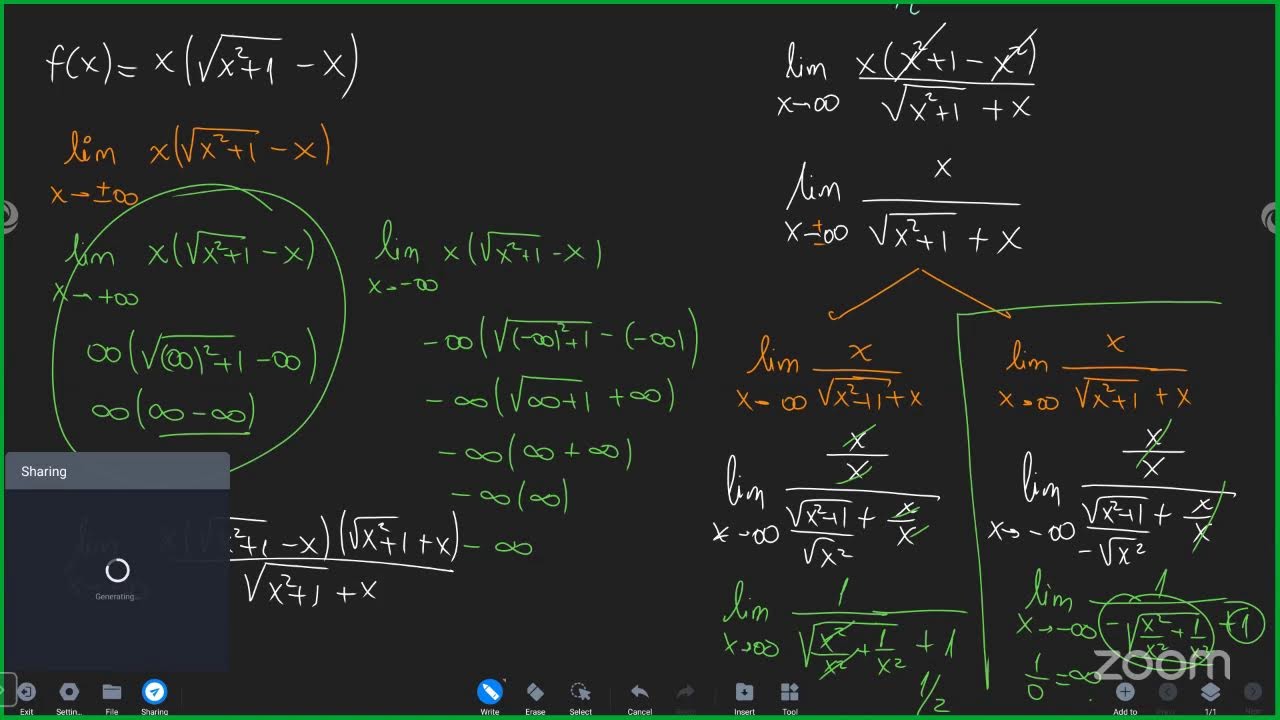 f(x) = x(√x²+1 - x)
lim x(√x²+1 - x)
x→±∞
lim x(√x²+1 - x)
x→+∞
∞(√(∞)²+1 - ∞)
∞(∞ - ∞)
lim x(√x²+1 - x)
x→-∞
-∞(√(-∞)²+1 - (-∞))
-∞(√∞+1 + ∞)
-∞(∞ + ∞)
-∞(∞)
-∞
x²+1 - x)(√x²+1 + x)
√x²+1 + x
lim x(x²+1 - x²)
x→∞ √x²+1 + x
lim x
x→±∞ √x²+1 + x
lim x
x→∞ √x²+1 + x
lim x/x
x→∞ √x²+1/√x² + x/x
lim 1
x→∞ √x²/x²+1/x² + 1
1/2
lim x
x→∞ √x²+1 + x
lim x/x
x→-∞ √x²+1/-√x² + x/x
lim 1
x→-∞ -√x²/x²+1/x² +1
1/0 = ∞
zoom
Sharing
Generating...
Exit
Settin...
File
Sharing
Write
Erase
Select
Cancel
Insert
Tool
Add to
1/1